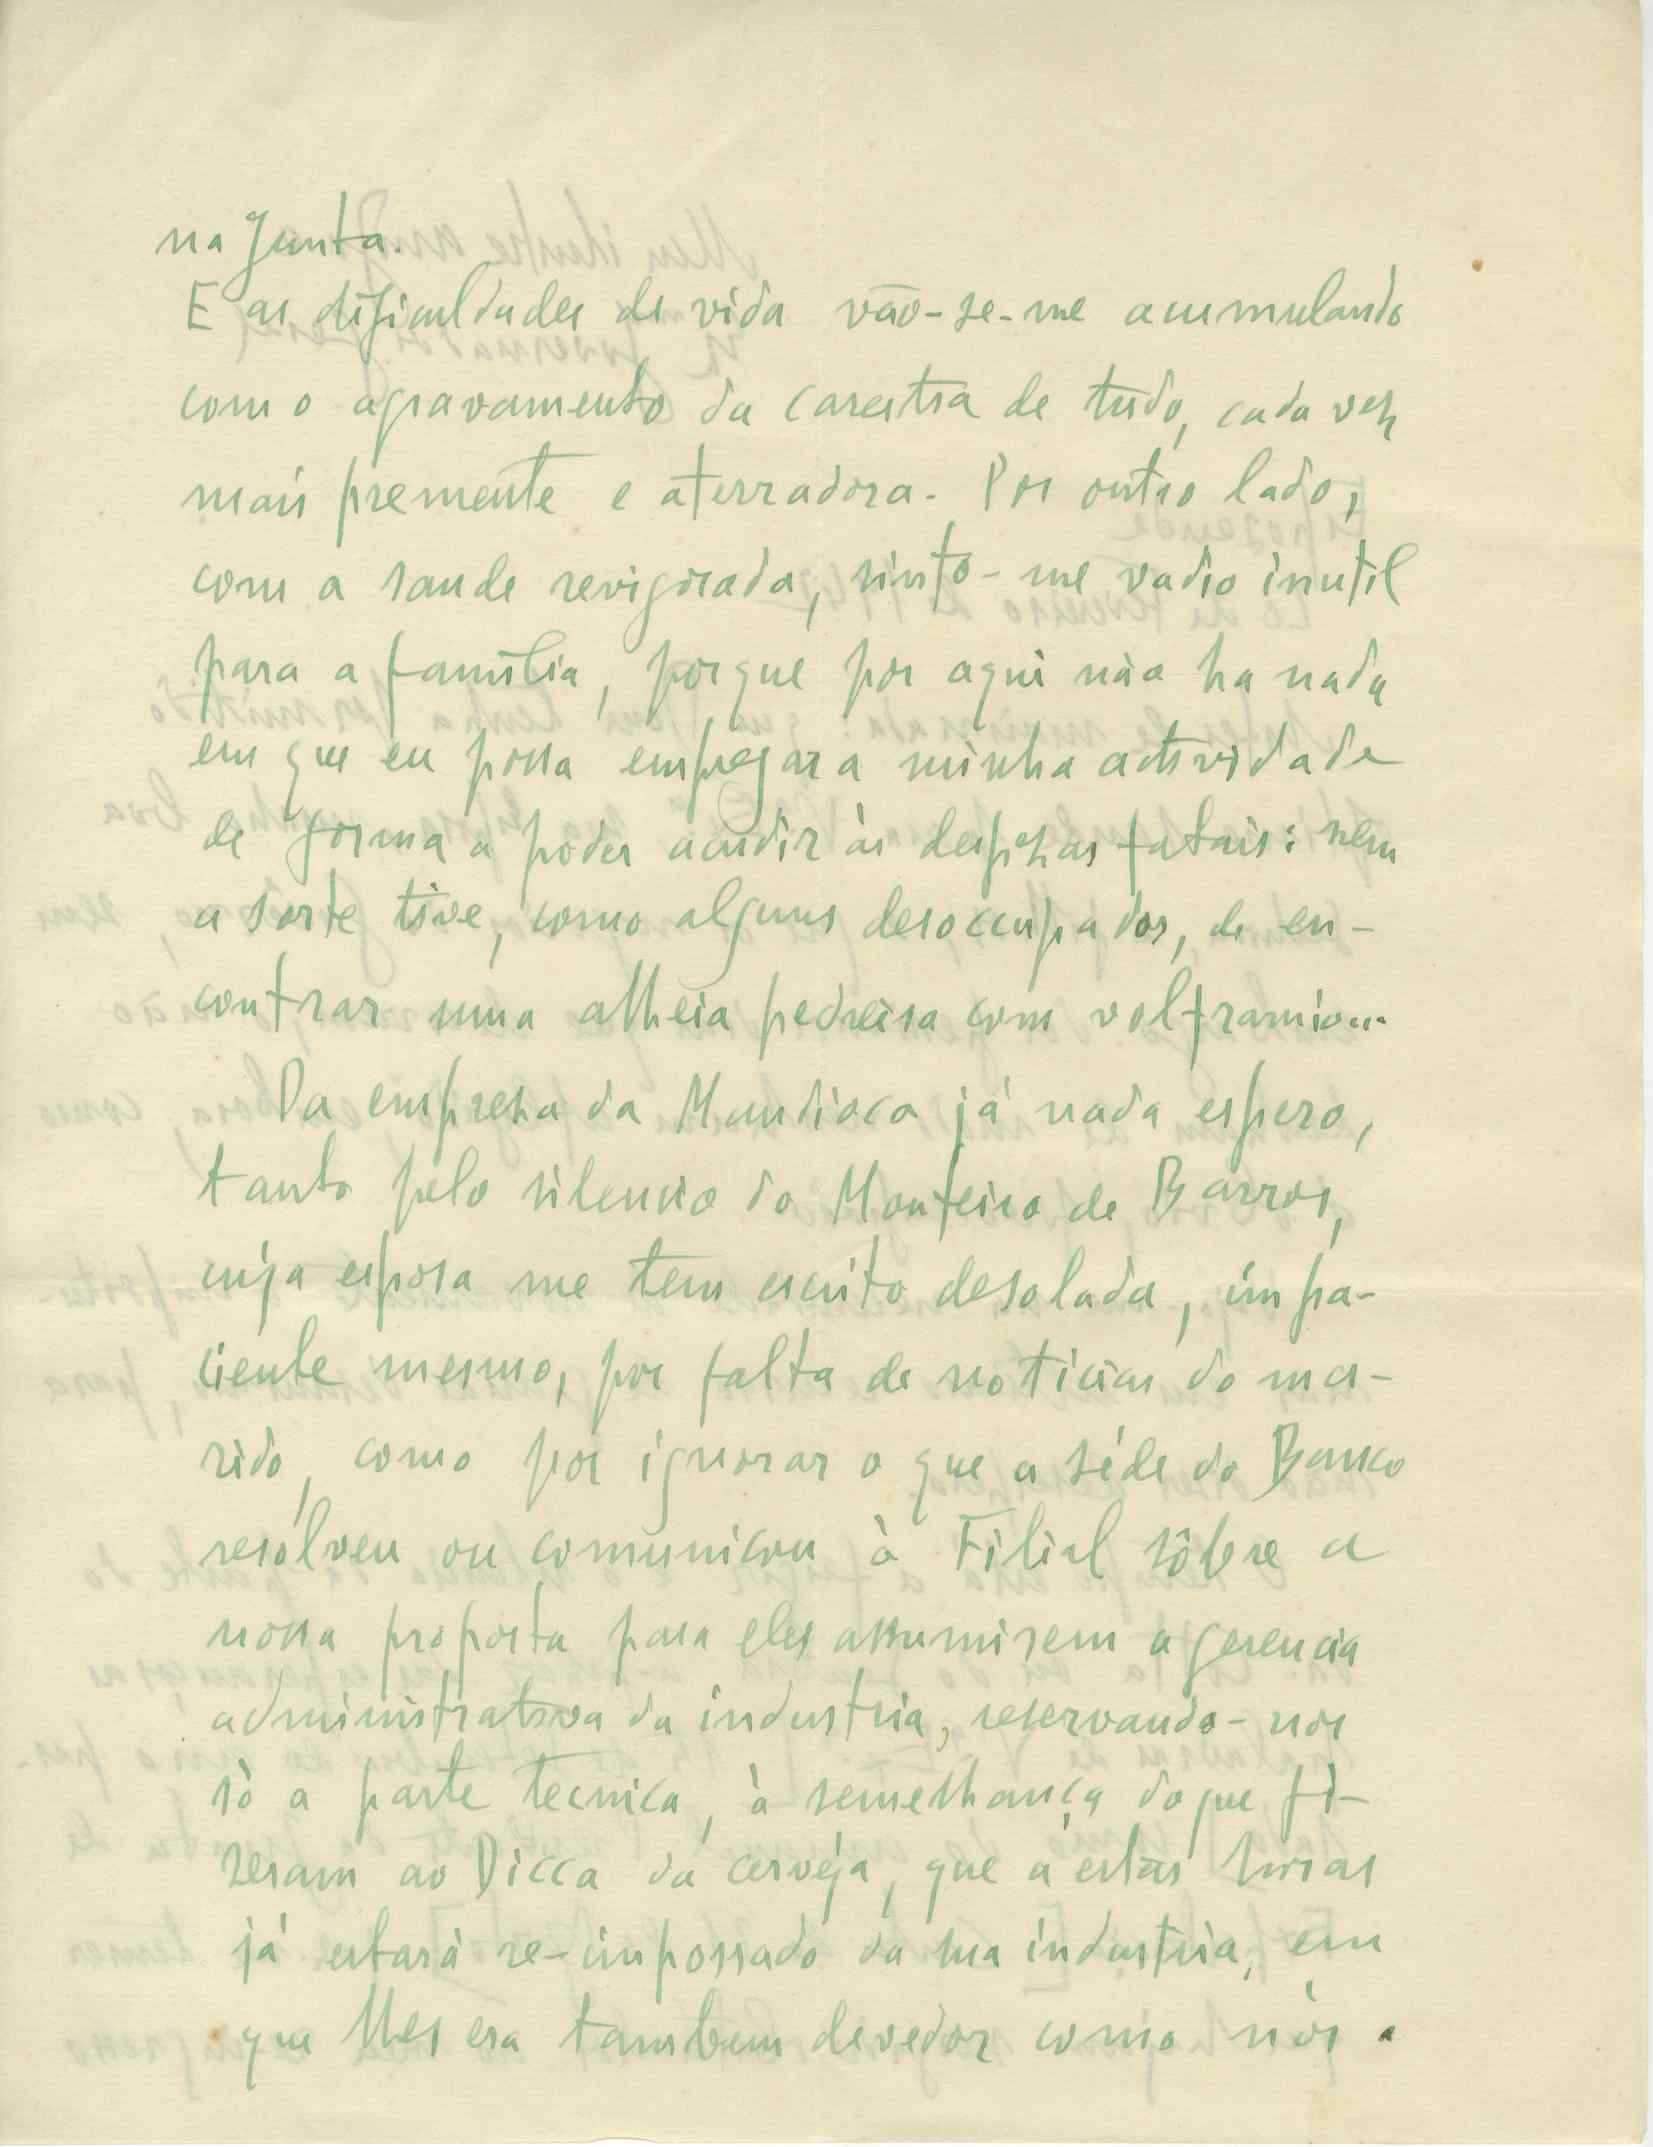 na Junta.
E as dificuldades de vida vão-se-me acumulando
com o agravamento da carestia de tudo, cada vez
mais premente e aterradora. Por outro lado,
com a saude revigorada, sinto-me vadio inutil
para a familia, porque por aqui não ha nada
em que eu possa empregar a minha actividade
de forma a poder acudir às despezas fatais: nem
a sorte tive, como alguns desoccupados, de en-
contrar uma alheia pedreira com volframio...
Da empreza da Mandioca já nada espero,
tanto pelo silencio do Monteiro de Barros,
cuja esposa me tem escrito desolada, impa-
ciente mesmo, por falta de noticias do ma-
rido, como por ignorar o que a séde do Banco
resolveu ou comunicou à Filial sôbre a
nossa proposta para eles assumirem a gerencia
administrativa da industria, reservando-nos
só a parte tecnica, à semelhança do que fi-
zeram ao Dicca da cerveja, que a estas horas
já estará re-impossado da sua industria, em
que lhes era tambem devedor como nós.